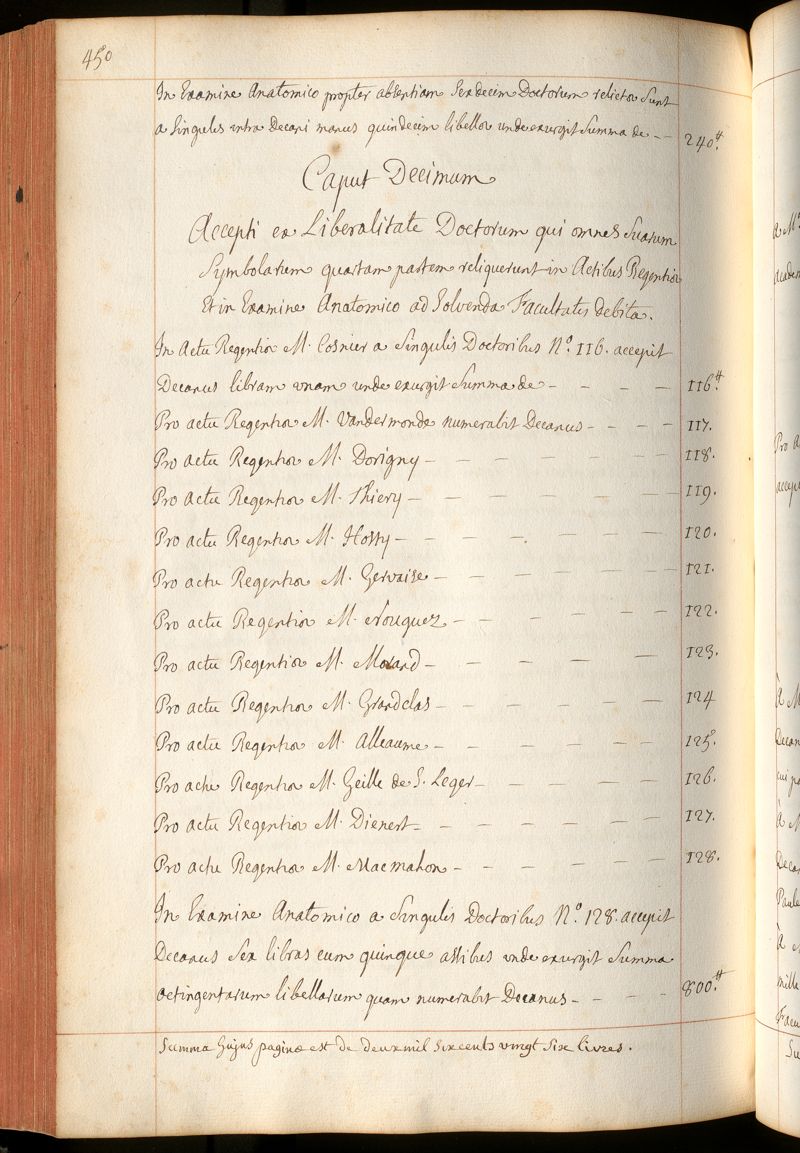 450
In Examine Anatomico propter absentiam Sexdecim Doctorum relictæ Sunt
a Singulis intra Decani manus quindecim libellæ unde exurgit Summa de -- 240.tt
Caput Decimum
Accepti ex Liberalitate Doctorum qui omnes Suarum
Symbolarum quartam partem reliquerunt in Actibus Regentiæ
Et in Examine Anatomico ad Solvenda Facultatis debita.
In Actu Regentiæ M. Cosnier a Singulis Doctoribus N.o 116. accepit
Decanus libram unam unde exurgit Summa de - - - - 116.tt
Pro actu Regentiæ M. Vandermonde numerabit Decanus - - - - 117.
Pro actu Regentiæ M. Dorigny - - - - - - - 118.
Pro actu Regentiæ M. Thiery - - - - - - - 119.
Pro actu Regentiæ M. Hosty - - - - - - - 120.
Pro actu Regentiæ M. Gervaise - - - - - - - 121.
Pro actu Regentiæ M. Nouguez - - - - - - 122.
Pro actu Regentiæ M. Morand - - - - - 123.
Pro actu Regentiæ M. Grandclas - - - - - - 124
Pro actu Regentiæ M. Alleaume - - - - - - 125.
Pro actu Regentiæ M. Geille de S. Leger - - - - - - 126.
Pro actu Regentiæ M. Dienert - - - - - - - 127.
Pro actu Regentiæ M. Macmahon - - - - - - 128.
In Examine Anatomico a Singulis Doctoribus N.o 128. accepit
Decanus Sex libras cum quinque assibus unde exurgit Summa
octingentarum libellarum quam numerabit Decanus - - - - 800.tt
Summa hujus paginæ est de deux mil Six cents vingt Six livres.